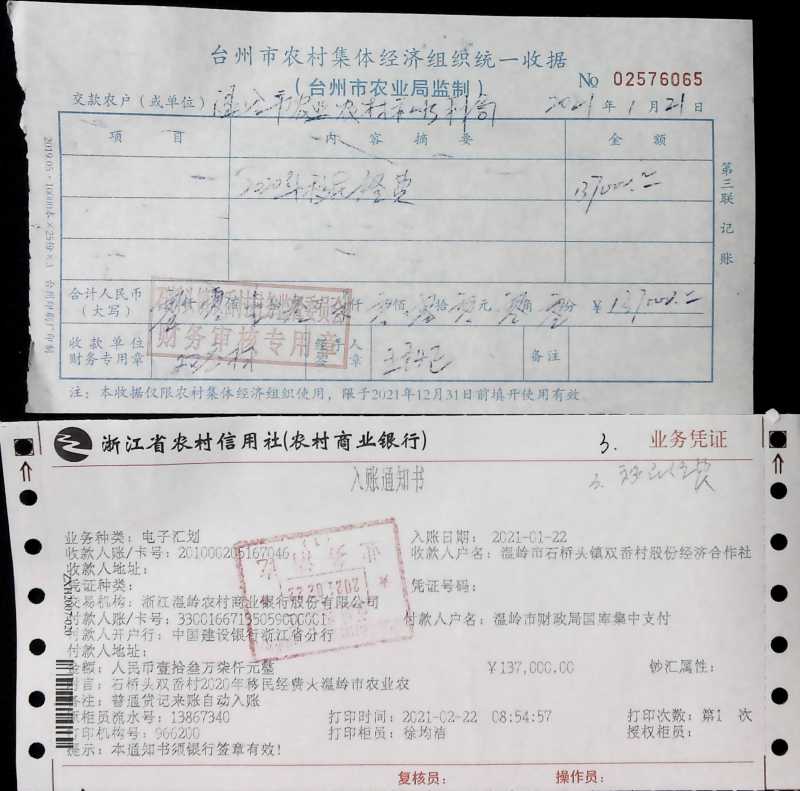 台州市农村集体经济组织统一收据
(台州市农业局监制)
No 02576065
交款农户(或单位) 2021年1月21日
项目 内容摘要 金额
2020年移民经费 137000.00
第三联 记账
2019.05·10000本×25份×3 台州印刷厂印制
合计人民币(大写) 仟 佰 拾 元 角 分 ¥137000.00
财务审核专用章
收款单位财务专用章 经手人章 备注
注:本收据仅限农村集体经济组织使用,限于2021年12月31日前填开使用有效。
浙江省农村信用社(农村商业银行) 3. 业务凭证
入账通知书 3. 移民经费
业务种类: 电子汇划 入账日期: 2021-01-22
收款人账/卡号: 201000205167046 收款人户名: 温岭市石桥头镇双岙村股份经济合作社
收款人地址:
凭证种类: 凭证号码:
交易机构: 浙江温岭农村商业银行股份有限公司
付款人账/卡号: 33001667135059000001 付款人户名: 温岭市财政局国库集中支付
付款人开户行: 中国建设银行浙江省分行
付款人地址:
金额: 人民币壹拾叁万柒仟元整 ¥137,000.00 钞汇属性:
附言: 石桥头双岙村2020年移民经费大温岭市农业农
备注: 普通贷记来账自动入账
原柜员流水号: 13867340 打印时间: 2021-02-22 08:54:57 打印次数: 第1 次
打印机构号: 966200 打印柜员: 徐均洁 授权柜员:
提示: 本通知书须银行签章有效!
复核员: 操作员: